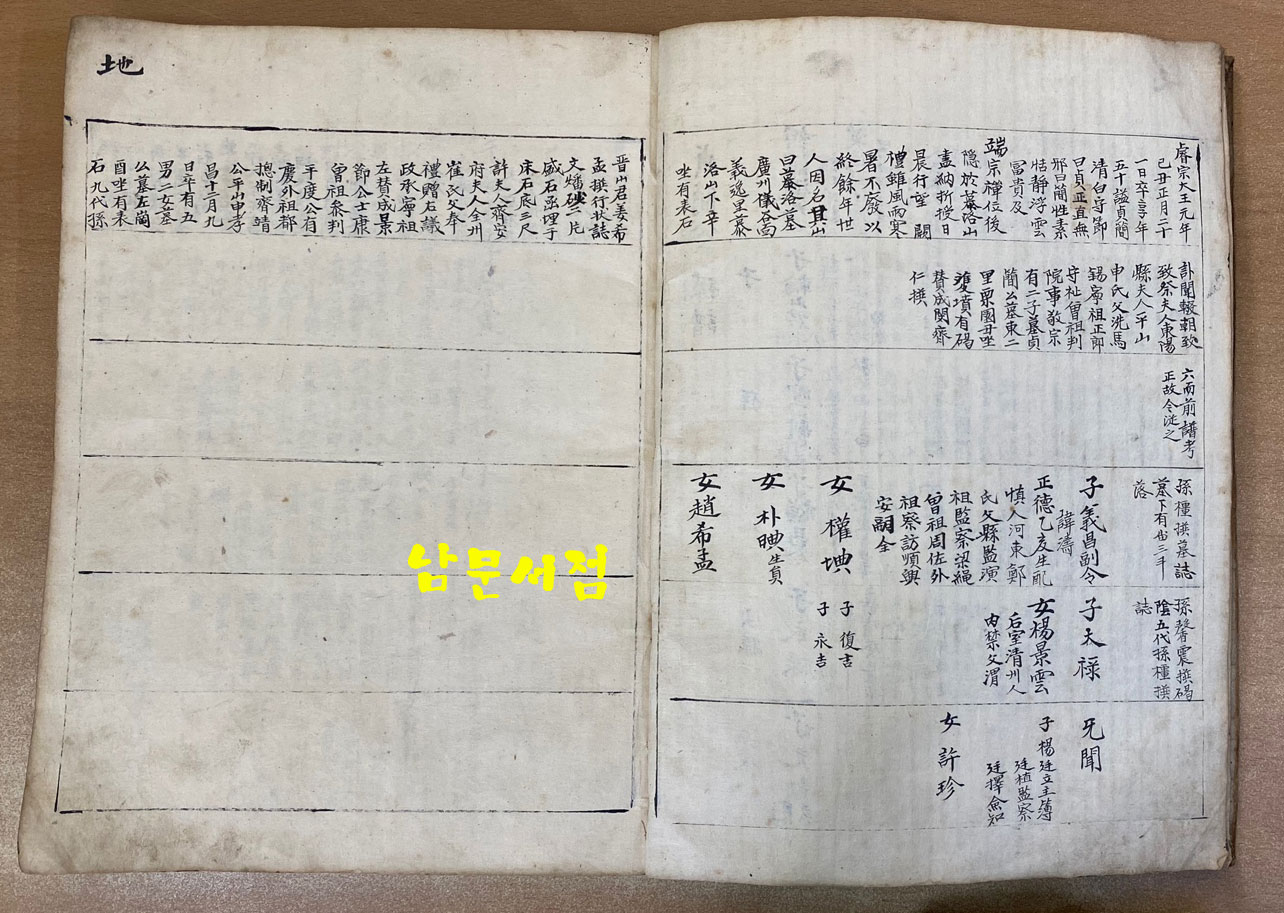 睿宗大王元年
己丑正月二十
一日卒享年
五十謚貞簡
清白守節
曰貞正直無
邪曰簡性素
恬靜浮雲
富貴及
端宗禪位後
隠於墓洛山
盡納折授日
晨行望闕
禮雖風雨寒
暑不廢以
終餘年世
人因名其山
曰慕洛墓
廣州儀谷面
義逸里慕
洛山下辛
坐有表石
訃聞輟朝致
致祭夫人東陽
縣夫人平山
申氏父洗馬
錫寧祖正郎
守祉曽祖判
院事敬宗
有二子墓貞
簡公墓東二
里栗園丑坐
雙墳有碣
賛成閔齊
仁撰
六而前譜考
正故令從之
孫橿撰墓誌
墓下有
落
子義昌副令
諱濤
正德乙亥生配
慎人河東鄭
氏父縣監演
祖監察梁縄
曽祖周佐外
祖察訪順興
安嗣全
女權㙉
女朴㬌生員
女趙希孟
孫聲震撰碣
陰五代孫橿撰
誌
子天禄
女楊景雲
后室清州人
内禁父渭
子復吉
子永吉
旡聞
子楊廷立主簿
廷植監察
廷擇僉知
女許珍
地
晋山君姜希
孟撰行狀誌
文燔二片
盛石函埋于
床石底三尺
許夫人齊安
府夫人全州
崔氏父奉
禮贈右議
政承寧祖
左賛成景
節公士康
曽祖叅判
平度公有
慶外祖都
摠制齊靖
公平山申孝
昌十二月九
日卒有五
男二女墓
公墓左岡
酉坐有表
石九代孫
남문서점